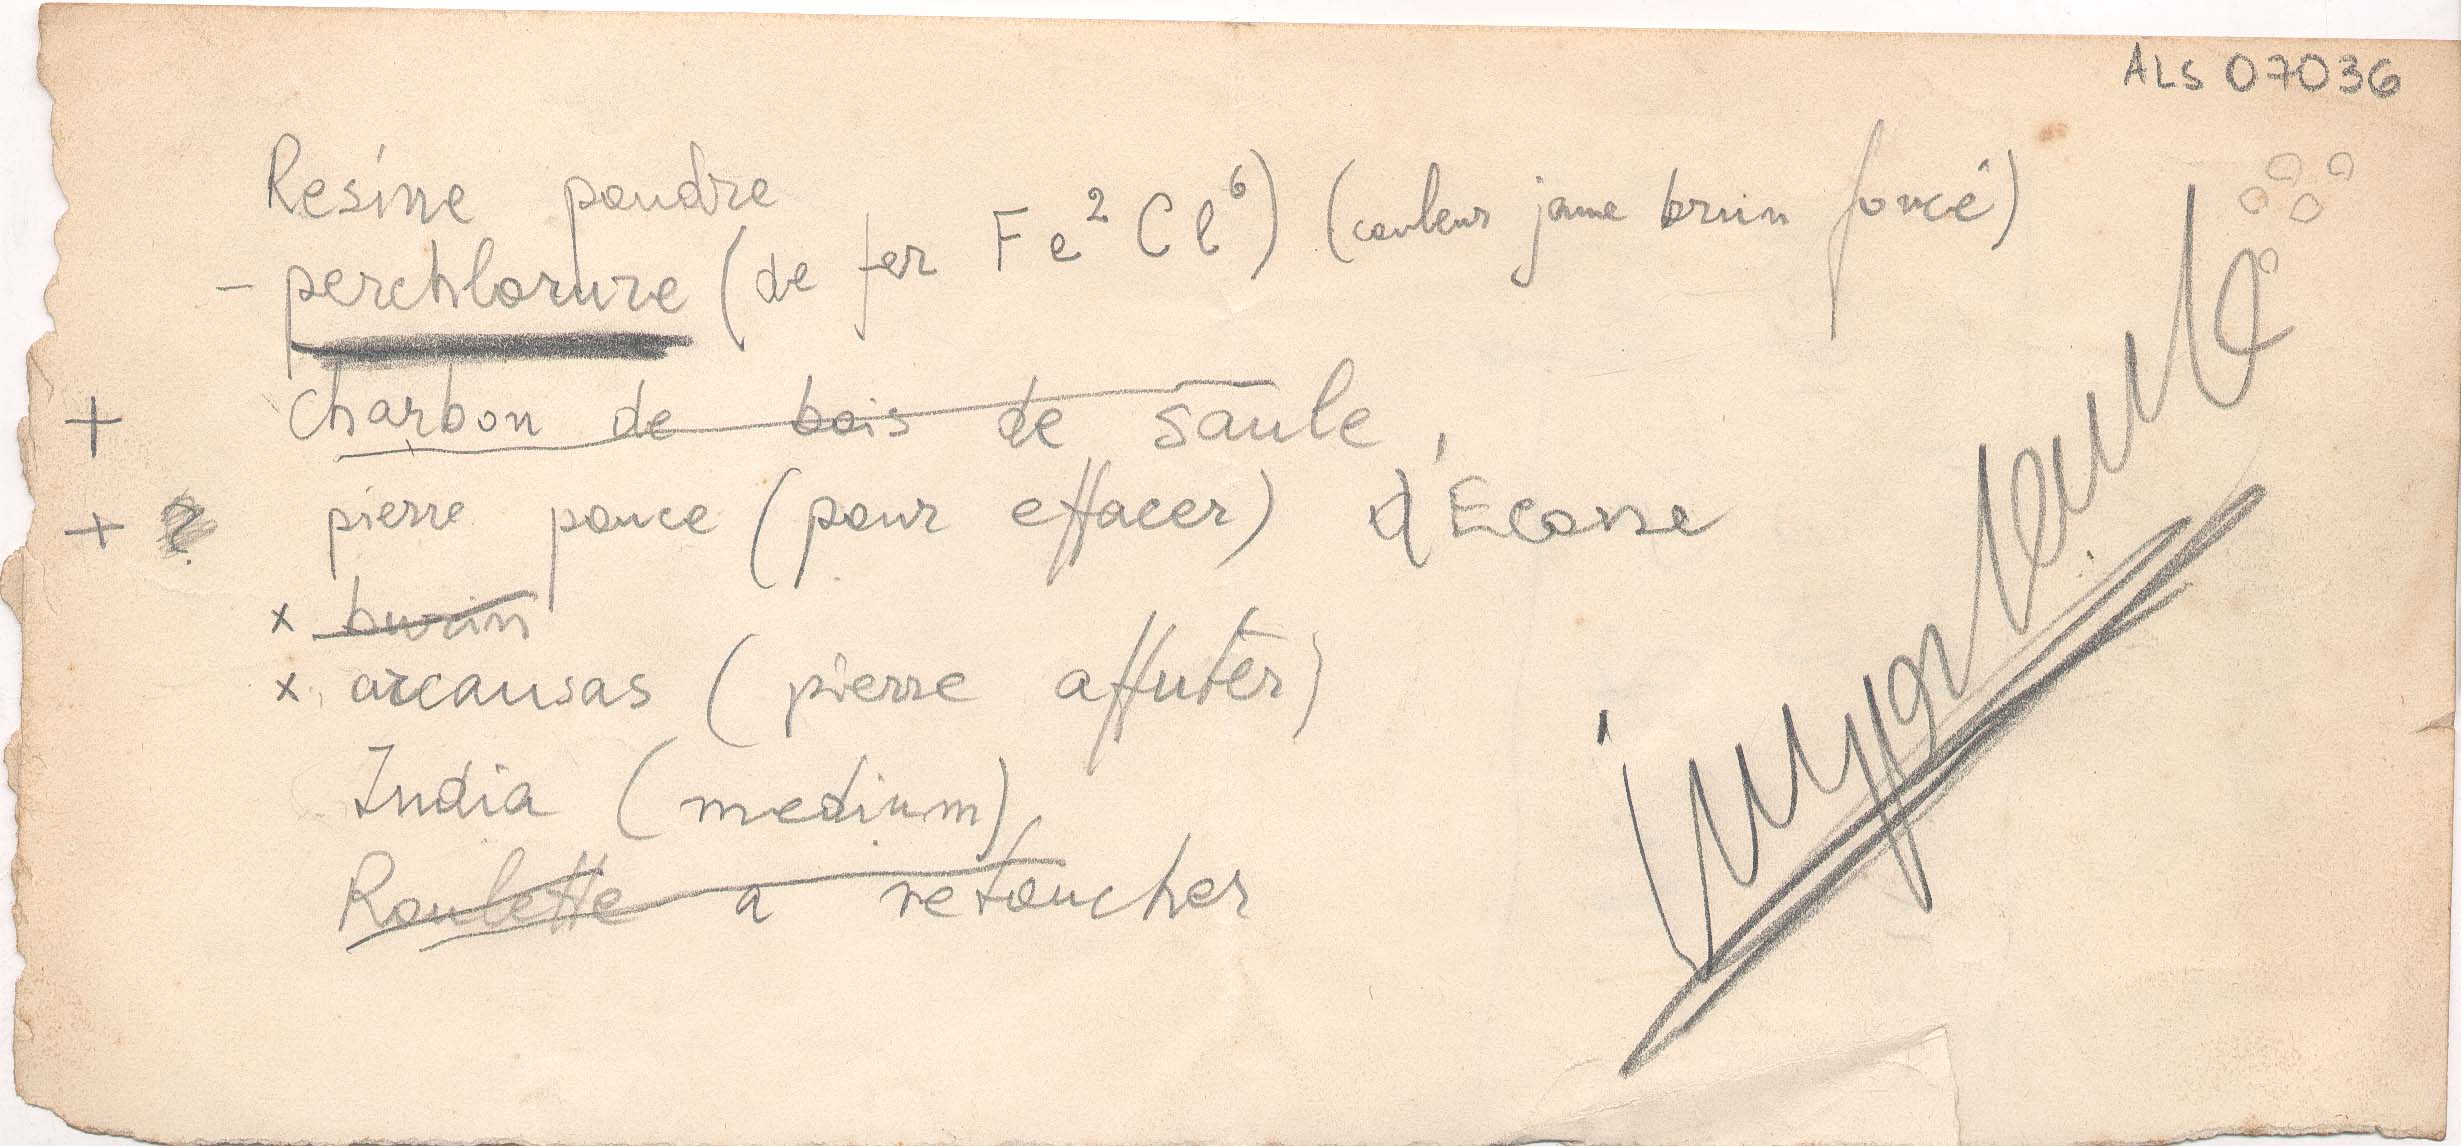 ALS 07036
Resine poudre
- perchlorure (de fer Fe² Cl⁶) (couleur jaune brun foncé)
+ charbon de bois de saule,
+ ? pierre ponce (pour effacer) d'Ecosse
x burin
x arcansas (pierre affuter)
India (medium)
Roulette a retoucher